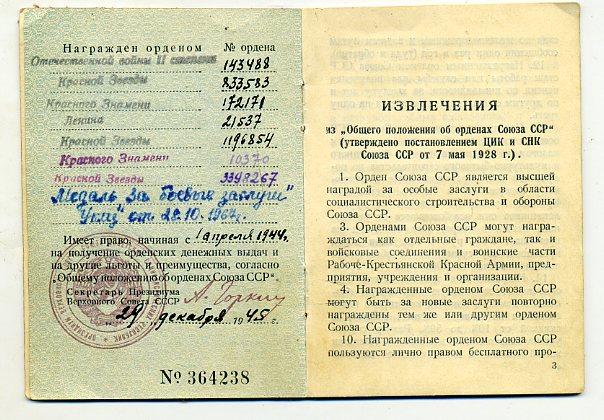 Награжден орденом № ордена
Отечественной войны II степени 143488
Красной Звезды 833583
Красного Знамени 172171
Ленина 21537
Красной Звезды 1196854
Красного Знамени 10370
Красной Звезды 3398267
Медаль "За боевые заслуги"
Указ от 28.10.1967г.
Имеет право, начиная с 1 апреля 1944г.
на получение орденских денежных выдач и
на другие льготы и преимущества, согласно
„Общему положению об орденах Союза ССР“
Секретарь Президиума
Верховного Совета СССР А. Горкин
„29“ декабря 1945 г.
№ 364238
ИЗВЛЕЧЕНИЯ
из „Общего положения об орденах Союза ССР“
(утверждено постановлением ЦИК и СНК
Союза ССР от 7 мая 1928 г.).
1. Орден Союза ССР является высшей
наградой за особые заслуги в области
социалистического строительства и обороны
Союза ССР.
3. Орденами Союза ССР могут на-
граждаться как отдельные граждане, так и
войсковые соединения и воинские части
Рабоче-Крестьянской Красной Армии, пред-
приятия, учреждения и организации.
4. Награжденные орденом Союза ССР
могут быть за новые заслуги повторно
награждены тем же или другим орденом
Союза ССР.
10. Награжденные орденом Союза ССР
пользуются лично правом бесплатного про-
3